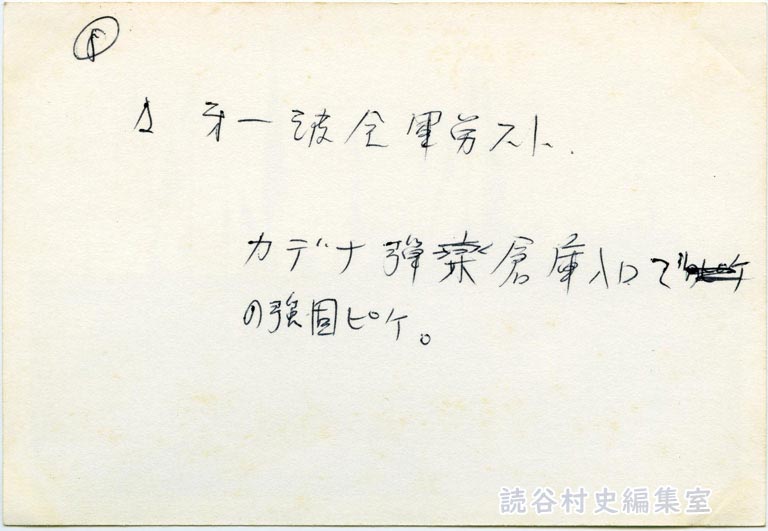 △ 才一波全軍労スト.
カデナ弾薬倉庫入口で
の強固ピケ。
読谷村史編集室